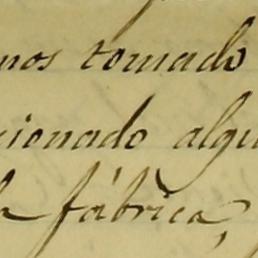 mos tomado
cionado algu
la fábrica,